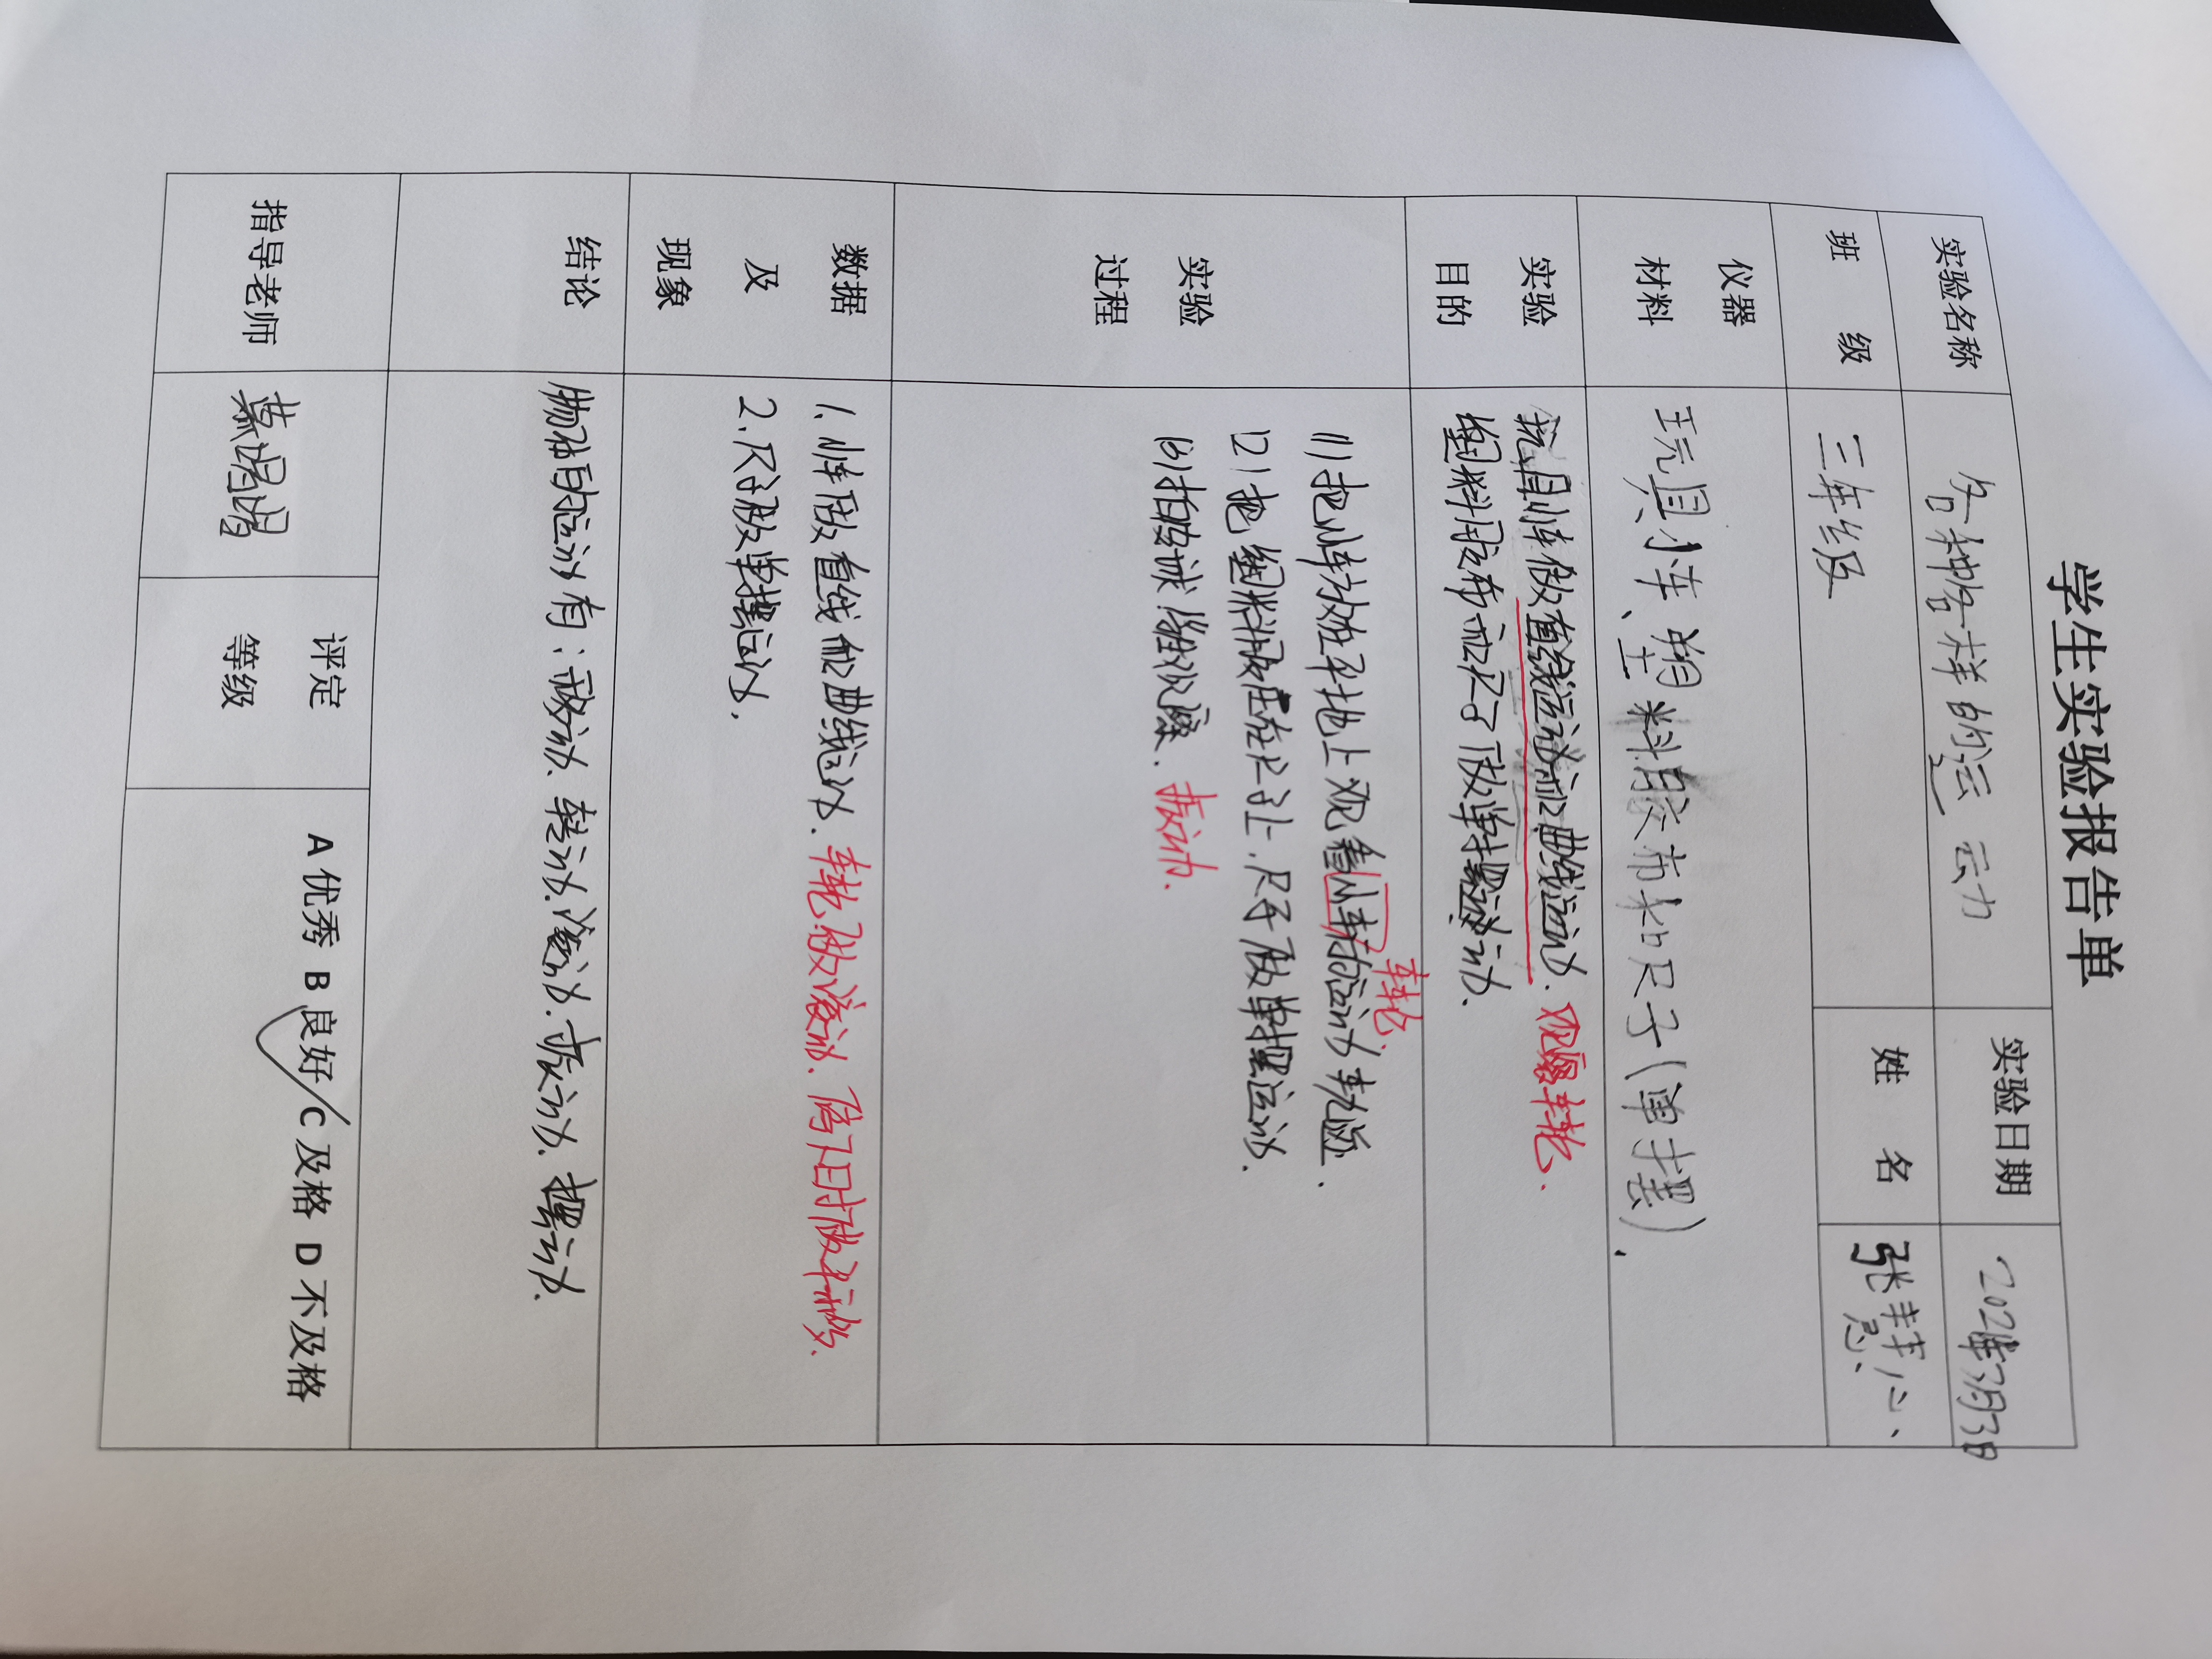 学生实验报告单
实验名称 各种各样的运动 实验日期 2024年3月3日
班 级 三年级 姓 名
仪器
材料 玩具小车、塑料胶布和尺子(单摆).
实验 玩具小车做直线运动和曲线运动. 观察车轮.
目的 塑料胶布和尺子做单摆运动.
实验
过程
(1)把小车放在平地上观看小车的运动轨迹.
车轮.
(2)把塑料胶压在尺子上.尺子做单摆运动.
振动.
数据
及
现象
1.小车做直线和曲线运动. 车轮做滚动.
2.尺子做单摆运动.
结论 物体的运动有:移动.转动.滚动.振动.摆动.
指导老师
评定
等级
A 优秀 B 良好 C 及格 D 不及格